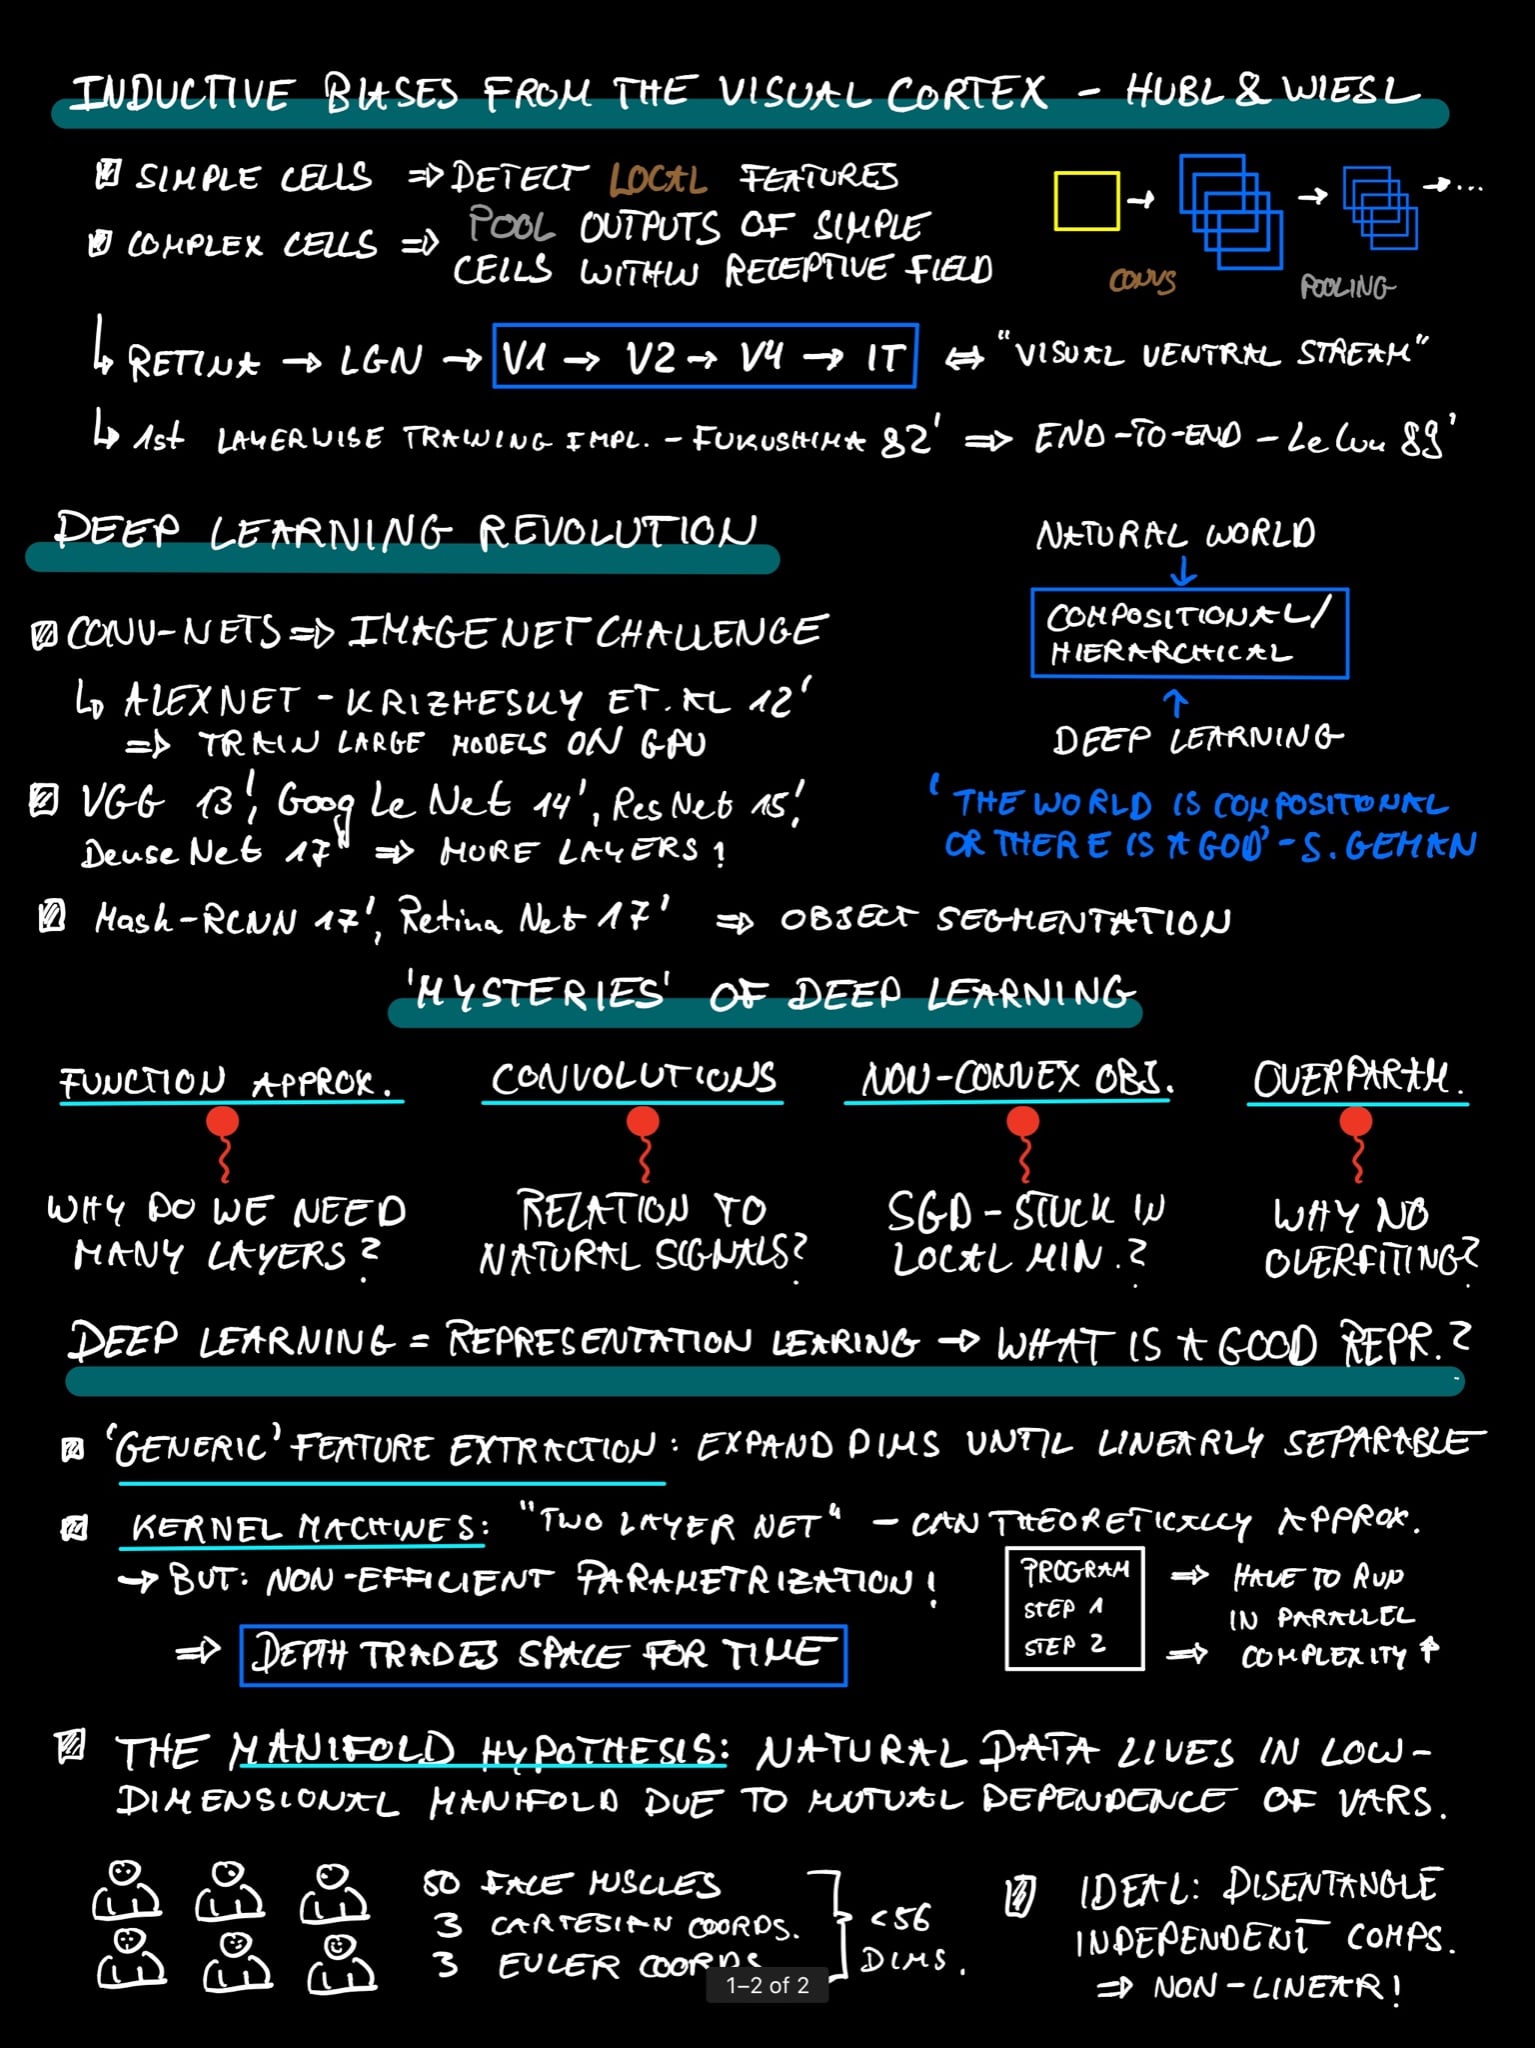 INDUCTIVE BIASES FROM THE VISUAL CORTEX - HUBL & WIESL
SIMPLE CELLS => DETECT LOCAL FEATURES
COMPLEX CELLS => POOL OUTPUTS OF SIMPLE
CELLS WITHIN RECEPTIVE FIELD
CONVS
POOLING
RETINA → LGN → V1 → V2 → V4 → IT ⇔ "VISUAL VENTRAL STREAM"
1st LAYERWISE TRAINING IMPL. - FUKUSHIMA 82' => END-TO-END - LeCun 89'
DEEP LEARNING REVOLUTION
CONV-NETS => IMAGENET CHALLENGE
ALEXNET - KRIZHESKY ET. AL 12'
=> TRAIN LARGE MODELS ON GPU
VGG 13', GoogLeNet 14', ResNet 15',
DenseNet 17" => MORE LAYERS!
NATURAL WORLD
COMPOSITIONAL/
HIERARCHICAL
DEEP LEARNING
'THE WORLD IS COMPOSITIONAL
OR THERE IS A GOD' - S. GEMAN
Mask-RCNN 17', RetinaNet 17' => OBJECT SEGMENTATION
'MYSTERIES' OF DEEP LEARNING
FUNCTION APPROX. CONVOLUTIONS NON-CONVEX OBJ. OVERPARAM.
WHY DO WE NEED
MANY LAYERS?
RELATION TO
NATURAL SIGNALS?
SGD - STUCK IN
LOCAL MIN.?
WHY NO
OVERFITING?
DEEP LEARNING = REPRESENTATION LEARING → WHAT IS A GOOD REPR.?
'GENERIC' FEATURE EXTRACTION: EXPAND DIMS UNTIL LINEARLY SEPARABLE
KERNEL MACHINES: "TWO LAYER NET" - CAN THEORETICALLY APPROX.
→ BUT: NON-EFFICIENT PARAMETRIZATION!
=> DEPTH TRADES SPACE FOR TIME
PROGRAM
STEP 1
STEP 2
=> HAVE TO RUN
IN PARALLEL
=> COMPLEXITY ↑
THE MANIFOLD HYPOTHESIS: NATURAL DATA LIVES IN LOW-
DIMENSIONAL MANIFOLD DUE TO MUTUAL DEPENDENCE OF VARS.
50 FACE MUSCLES
3 CARTESIAN COORDS.
3 EULER COORDS
<56
DIMS.
IDEAL: DISENTANGLE
INDEPENDENT COMPS.
=> NON-LINEAR!
1–2 of 2